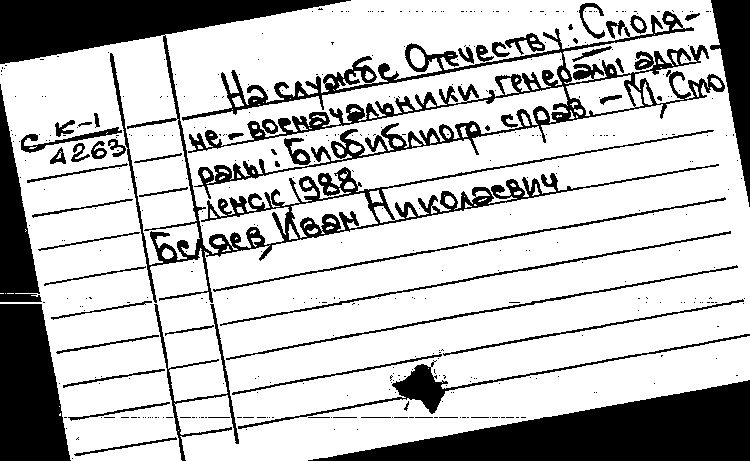 На службе Отечеству: Смоля-
не-военачальники, генералы адми-
ралы: Биобиблиогр. справ. - М., Смо
-ленск, 1988.
Беляев, Иван Николаевич.
С К-1
4263